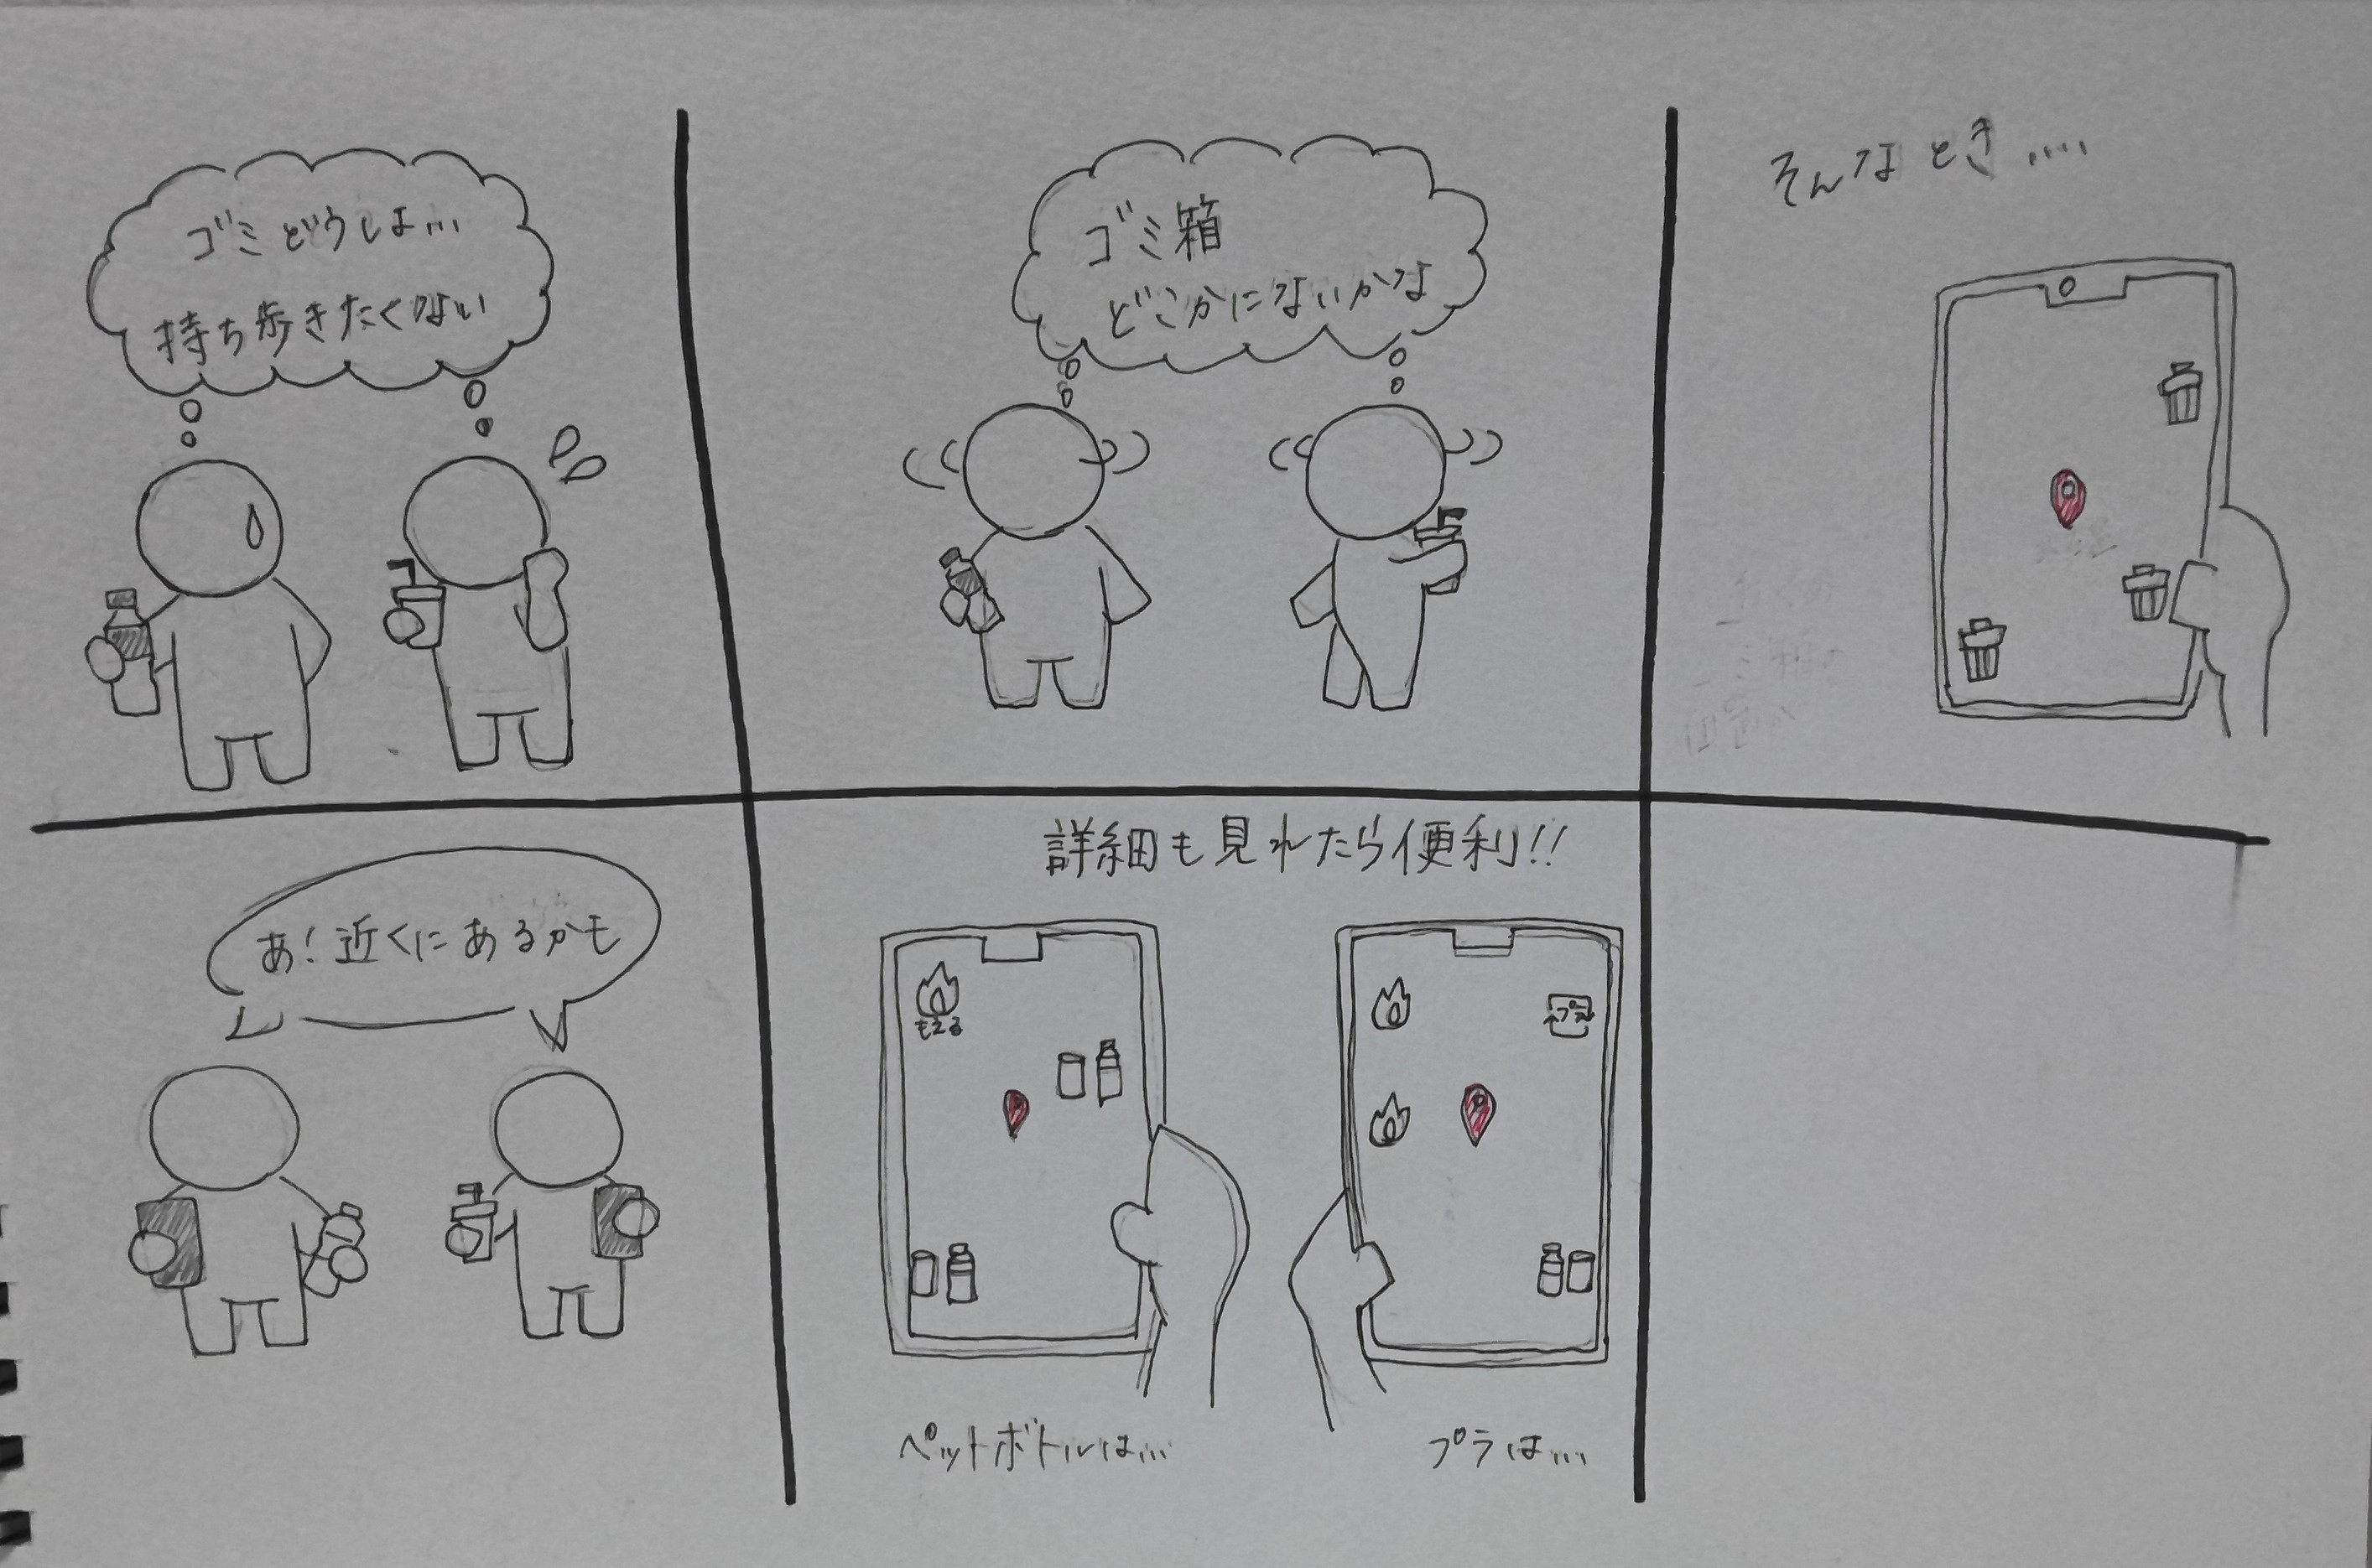 ゴミどうしよ…
持ち歩きたくない
ゴミ箱
どこかにないかな
そんなとき....
あ!近くにあるかも
詳細も見れたら便利!!
もえる
プラ
ペットボトルは…
プラは....